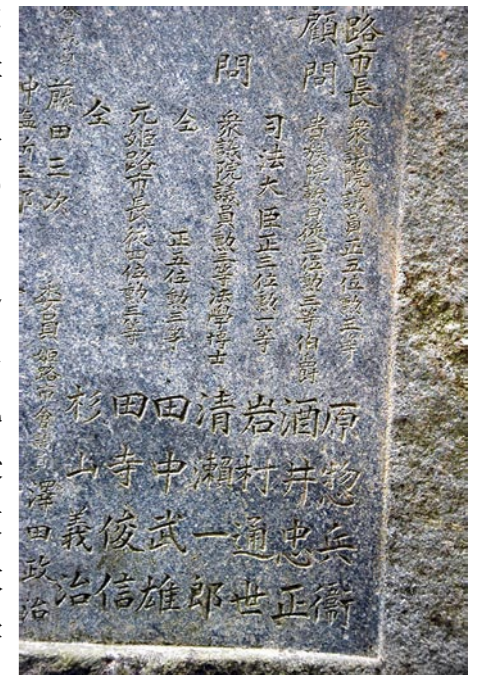 路市長 衆議院議員正五位勲三等 原惣兵衞
顧問 貴族院議員從三位勲三等伯爵 酒井忠正
司法大臣正三位勲一等 岩村通世
問 衆議院議員勲三等法學博士 清瀬一郎
仝 正五位勲三等 田中武雄
元姫路市長從四位勲三等 田寺俊信
仝 杉山義治
藤田三次 委員 姫路市會議員 澤田政治